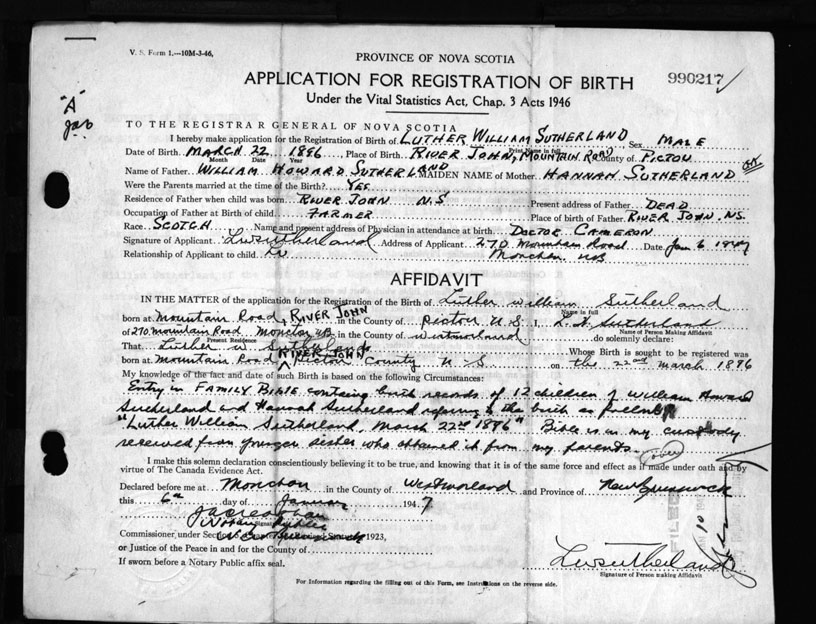 V. S. Form 1.—10M-3-46.
PROVINCE OF NOVA SCOTIA
APPLICATION FOR REGISTRATION OF BIRTH
990217
Under the Vital Statistics Act, Chap. 3 Acts 1946
"A"
TO THE REGISTRAR GENERAL OF NOVA SCOTIA
I hereby make application for the Registration of Birth of LUTHER WILLIAM SUTHERLAND Sex MALE
Print Name in full
Date of Birth MARCH 22 1896 Place of Birth RIVER JOHN, MOUNTAIN ROAD County of PICTOU
Month Date Year
Name of Father WILLIAM HOWARD SUTHERLAND MAIDEN NAME of Mother HANNAH SUTHERLAND
Were the Parents married at the time of the Birth? YES
Residence of Father when child was born RIVER JOHN N.S Present address of Father DEAD
Occupation of Father at Birth of child FARMER Place of birth of Father RIVER JOHN. N.S.
Race SCOTCH Name and present address of Physician in attendance at birth DOCTOR CAMERON
Signature of Applicant L W Sutherland Address of Applicant 270 Mountain Road Date Jan 6 1947
Relationship of Applicant to child Moncton NB
AFFIDAVIT
IN THE MATTER of the application for the Registration of the Birth of Luther William Sutherland
Name in full
born at Mountain Road, RIVER JOHN in the County of Pictou N.S I, L. W Sutherland
Name of Person Making Affidavit
of 270 Mountain Road Moncton NB in the County of Westmorland do solemnly declare:
Present Residence
That Luther W. Sutherland Whose Birth is sought to be registered was
born at Mountain Road RIVER JOHN Pictou County N.S on the 22nd March 1896
My knowledge of the fact and date of such Birth is based on the following Circumstances:
Entry in FAMILY BIBLE containing birth records of 12 children of William Howard
Sutherland and Hannah Sutherland referring to the birth as follows
"Luther William Sutherland, March 22nd 1896" Bible is in my custody
received from younger sister who obtained it from my parents. (over)
I make this solemn declaration conscientiously believing it to be true, and knowing that it is of the same force and effect as if made under oath and by
virtue of The Canada Evidence Act.
Declared before me at Moncton in the County of Westmorland and Province of New Brunswick
this 6th day of January 1947
Notary Public
Commissioner, under Section 1923,
or Justice of the Peace in and for the County of
If sworn before a Notary Public affix seal.
L W Sutherland
Signature of Person making Affidavit
For Information regarding the filling out of this Form, see Instructions on the reverse side.